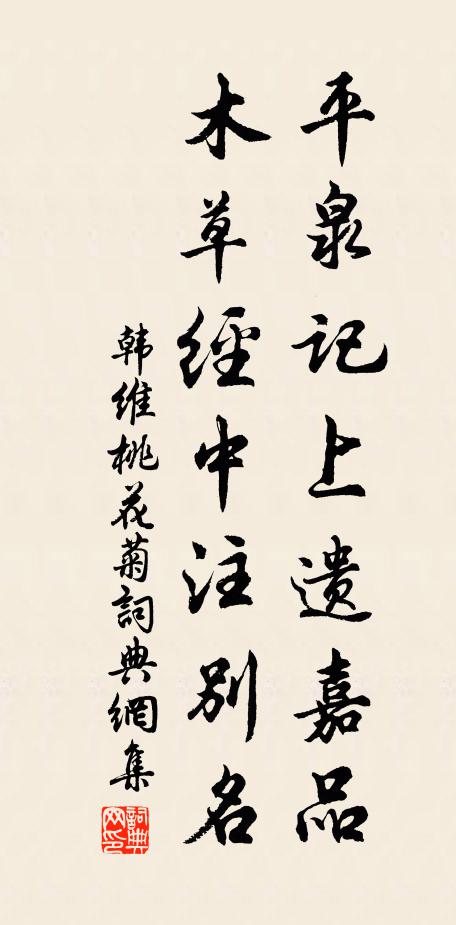 平泉记上遗嘉品
木草經中注别名
韩維桃花菊詞典網集
詞典网印